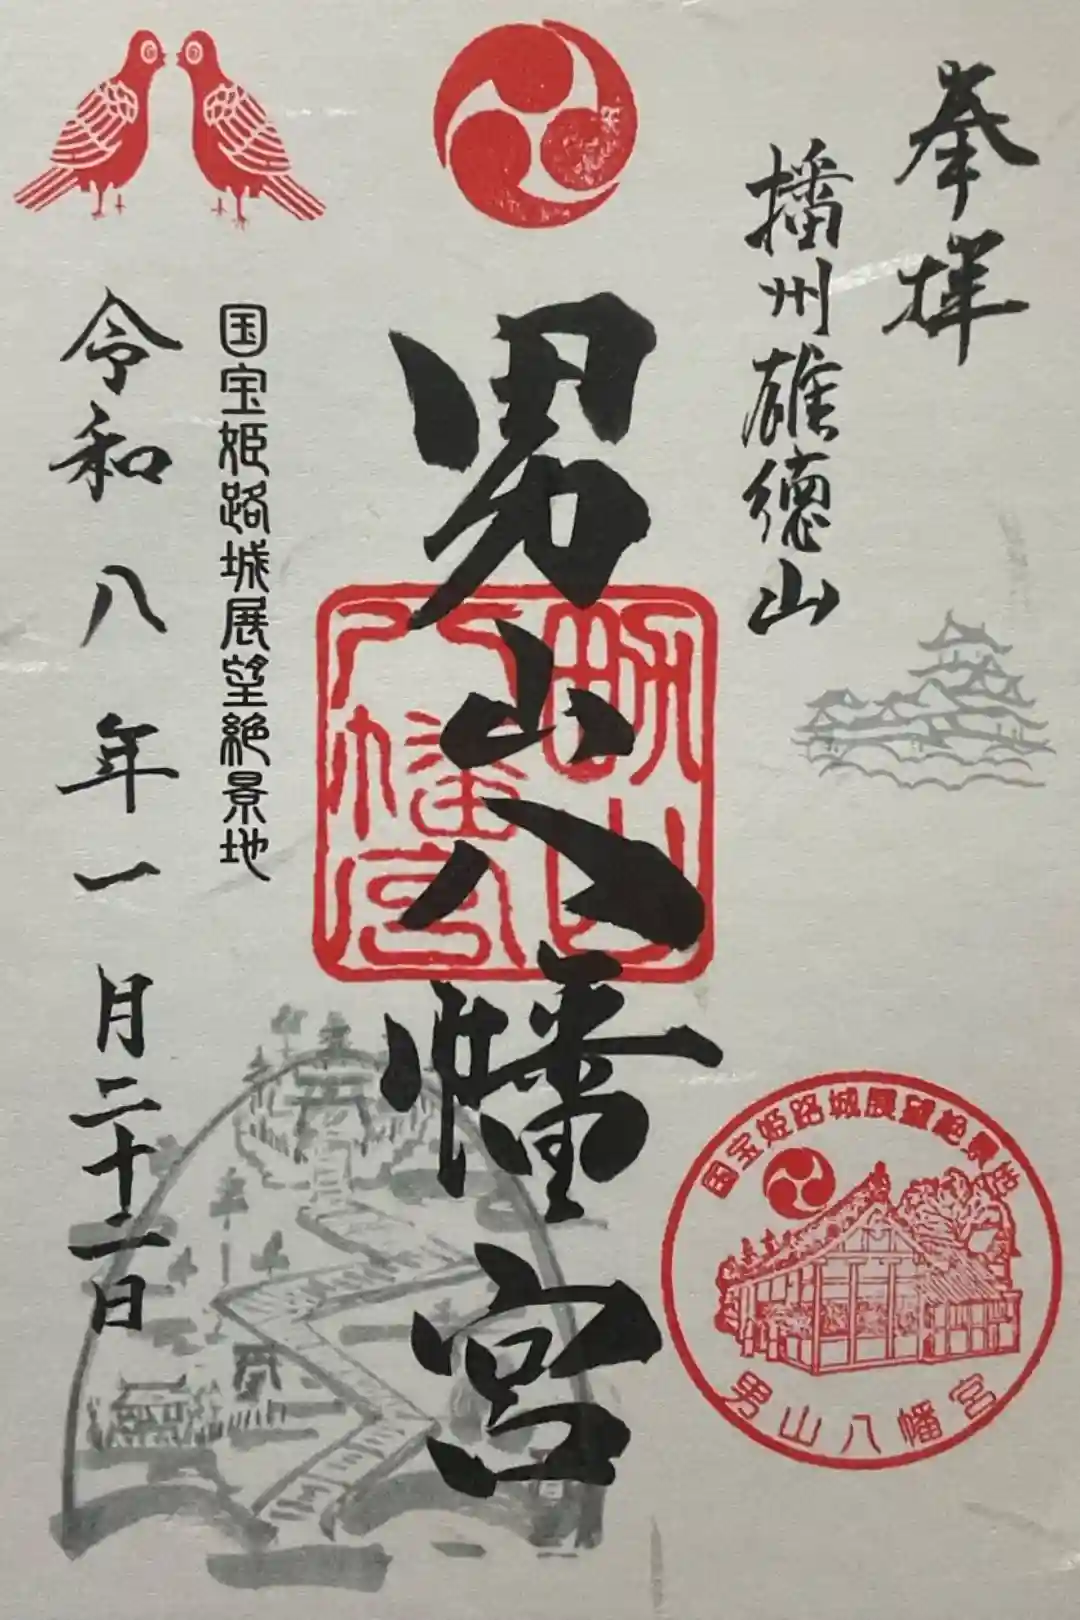 奉拝
播州雄徳山
男山八幡宮
男山八幡宮
国宝姫路城展望絶景地
令和八年一月二十二日
国宝姫路城展望絶景地
男山八幡宮